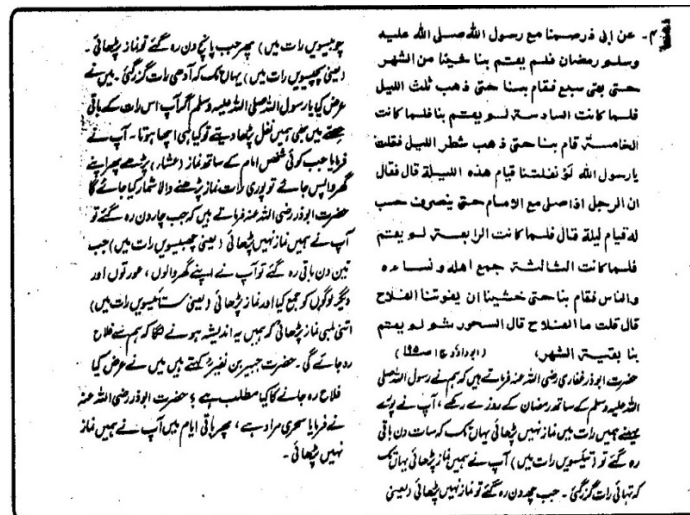 ۴- عن ابی ذر صمنا مع رسول الله صلی الله علیه
وسلم رمضان فلم یقم بنا شیئا من الشهر
حتی بقی سبع فقام بنا حتی ذهب ثلث اللیل
فلما کانت السادسة لم یقم بنا فلما کانت
الخامسة قام بنا حتی ذهب شطر اللیل فقلت
یا رسول الله لو نفلتنا قیام هذه اللیلة قال فقال
ان الرجل اذا صلی مع الامام حتی ینصرف حسب
له قیام لیلة قال فلما کانت الرابعة لم یقم
فلما کانت الثالثة جمع اهله و نساءه
والناس فقام بنا حتی خشینا ان یفوتنا الفلاح
قال قلت ما الفلاح قال السحور ثم لم یقم
بنا بقیة الشهر، (ابوداؤد ج۱ ص۱۹۵)
حضرت ابوذر غفاری رضی اللہ عنہ فرماتے ہیں کہ ہم نے رسول اللہ صلی
اللہ علیہ وسلم کے ساتھ رمضان کے روزے رکھے، آپ نے پورے
مہینے ہمیں رات میں نماز نہیں پڑھائی یہاں تک کہ سات دن باقی
رہ گئے تو (تیئسویں رات میں) آپ نے ہمیں نماز پڑھائی یہاں تک
کہ تہائی رات گزر گئی۔ جب چھ دن رہ گئے تو نماز نہیں پڑھائی (یعنی
چوبیسویں رات میں) پھر جب پانچ دن رہ گئے تو نماز پڑھائی۔
(یعنی پچیسویں رات میں) یہاں تک کہ آدھی رات گزر گئی۔ میں نے
عرض کیا یا رسول اللہ صلی اللہ علیہ وسلم اگر آپ اس رات کے باقی
حصے میں بھی ہمیں نفل پڑھا دیتے تو کیا ہی اچھا ہوتا۔ آپ نے
فرمایا جب کوئی شخص امام کے ساتھ نماز (عشاء) پڑھے پھر اپنے
گھر واپس جائے تو پوری رات نماز پڑھنے والا شمار کیا جائے گا
حضرت ابوذر رضی اللہ عنہ فرماتے ہیں کہ جب چار دن رہ گئے تو
آپ نے ہمیں نماز نہیں پڑھائی (یعنی چھبیسویں رات میں) جب
تین دن باقی رہ گئے تو آپ نے اپنے گھر والوں، عورتوں اور
دیگر لوگوں کو جمع کیا اور نماز پڑھائی (یعنی ستائیسویں رات میں)
اتنی لمبی نماز پڑھائی کہ ہمیں یہ اندیشہ ہونے لگا کہ ہم سے فلاح
رہ جائے گی۔ حضرت جبیر بن نفیرؒ کہتے ہیں میں نے عرض کیا
فلاح رہ جانے کا کیا مطلب ہے؟ حضرت ابوذر رضی اللہ عنہ
نے فرمایا سحری مراد ہے، پھر باقی ایام میں آپ نے ہمیں نماز
نہیں پڑھائی۔